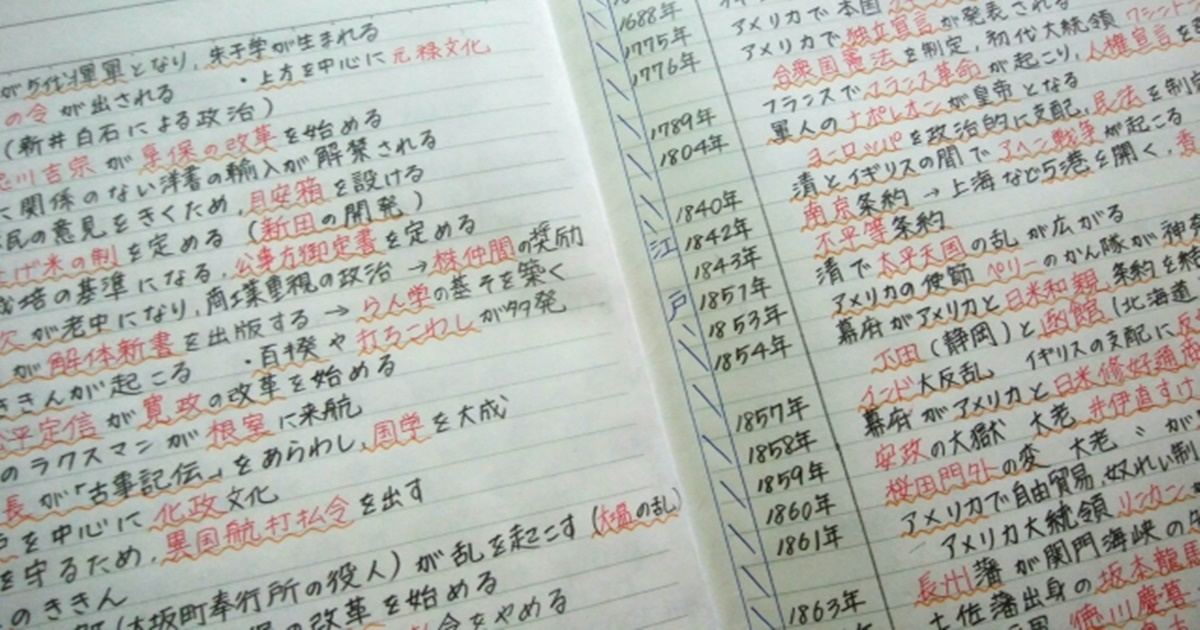 が5代将軍となり、朱子学が生まれる
の令が出される ・上方を中心に元禄文化
(新井白石による政治)
川吉宗が享保の改革を始める
に関係のない洋書の輸入が解禁される
民の意見をきくため、目安箱を設ける
げ米の制を定める (新田の開発)
栽培の基準になる、公事方御定書を定める
次が老中になり、商工業重視の政治 → 株仲間の奨励
が解体新書を出版する → らん学の基そを築く
ききんが起こる ・百揆や打ちこわしが多発
平定信が寛政の改革を始める
のラクスマンが根室に来航
長が「古事記伝」をあらわし、国学を大成
を中心に化政文化
を守るため、異国船打払令を出す
のききん
(大坂町奉行所の役人)が乱を起こす(大塩の乱)
の改革を始める
令をやめる
江戸
1688年
1775年 アメリカで本国
1776年 アメリカで独立宣言が発表される
合衆国憲法を制定、初代大統領ワシントン
1789年 フランスでフランス革命が起こり、人権宣言を
1804年 軍人のナポレオンが皇帝となる
ヨーロッパを政治的に支配、民法を制定
1840年 清とイギリスの間でアヘン戦争が起こる
1842年 南京条約 → 上海など5港を開く、香
1843年 不平等条約
1851年 清で太平天国の乱が広がる
1853年 アメリカの使節ペリーのかん隊が神奈
1854年 幕府がアメリカと日米和親条約を結
下田(静岡)と函館(北海道
1857年 インド大反乱 イギリスの支配に反
1858年 幕府がアメリカと日米修好通商
1859年 安政の大獄 大老 井伊直すけ
1860年 桜田門外の変 大老 〃 が
1861年 アメリカで自由貿易、奴れい制
アメリカ大統領 リンカン
1863年 長州藩が関門海峡の
土佐藩出身の坂本龍馬
徳川慶喜